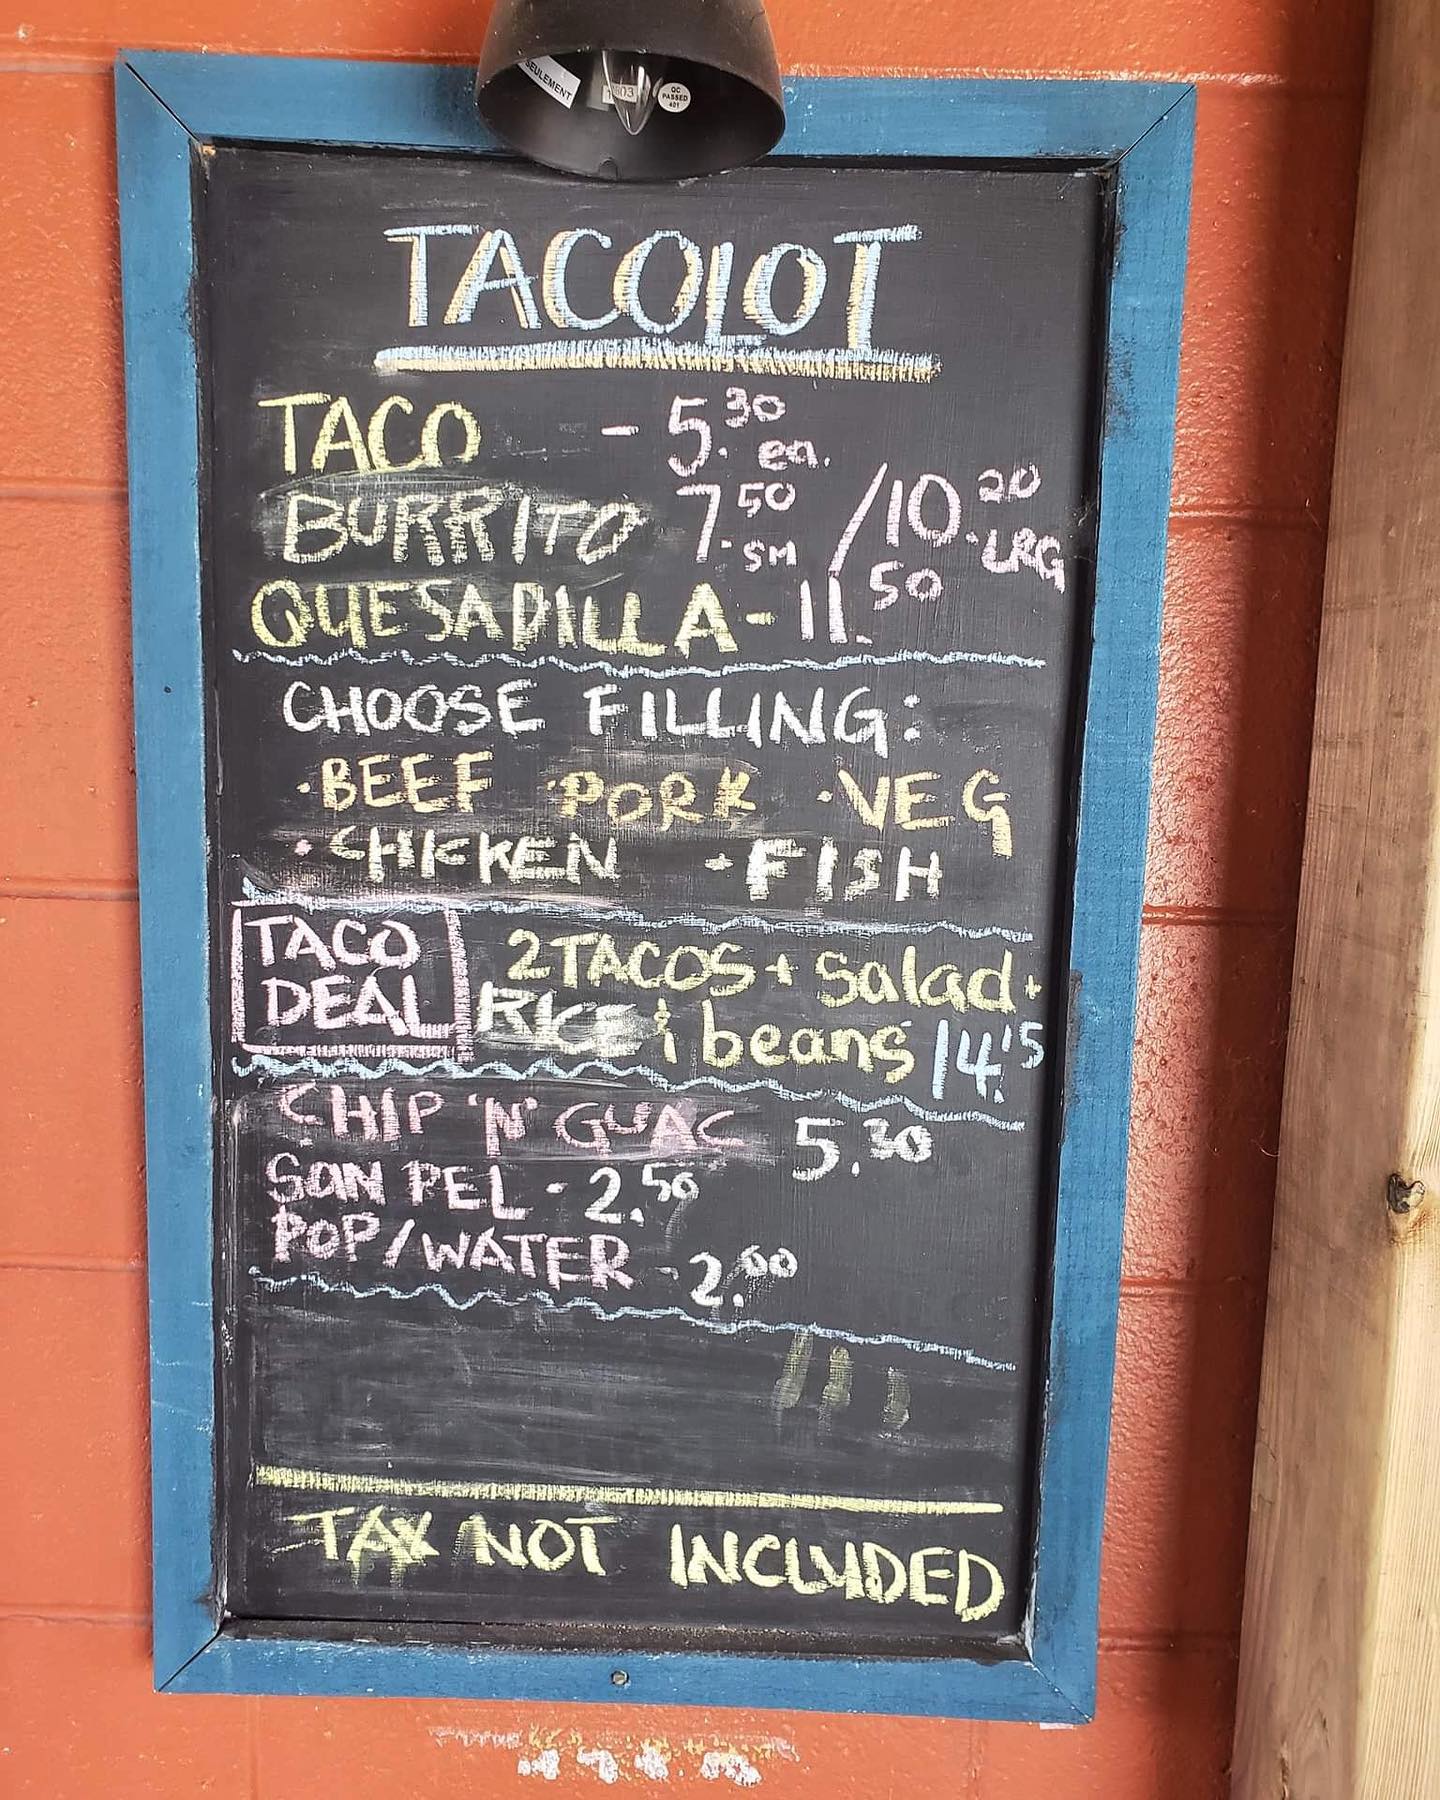 SEULEMENT
QC
PASSED
401
TACOLOT
TACO - 5.30 ea.
BURRITO 7.50 SM / 10.20 LRG
QUESADILLA - 11.50
CHOOSE FILLING:
·BEEF ·PORK ·VEG
·CHICKEN ·FISH
TACO
DEAL
2 TACOS + Salad +
RICE & beans 14.15
CHIP 'N' GUAC 5.30
SAN PEL - 2.50
POP/WATER - 2.00
TAX NOT INCLUDED